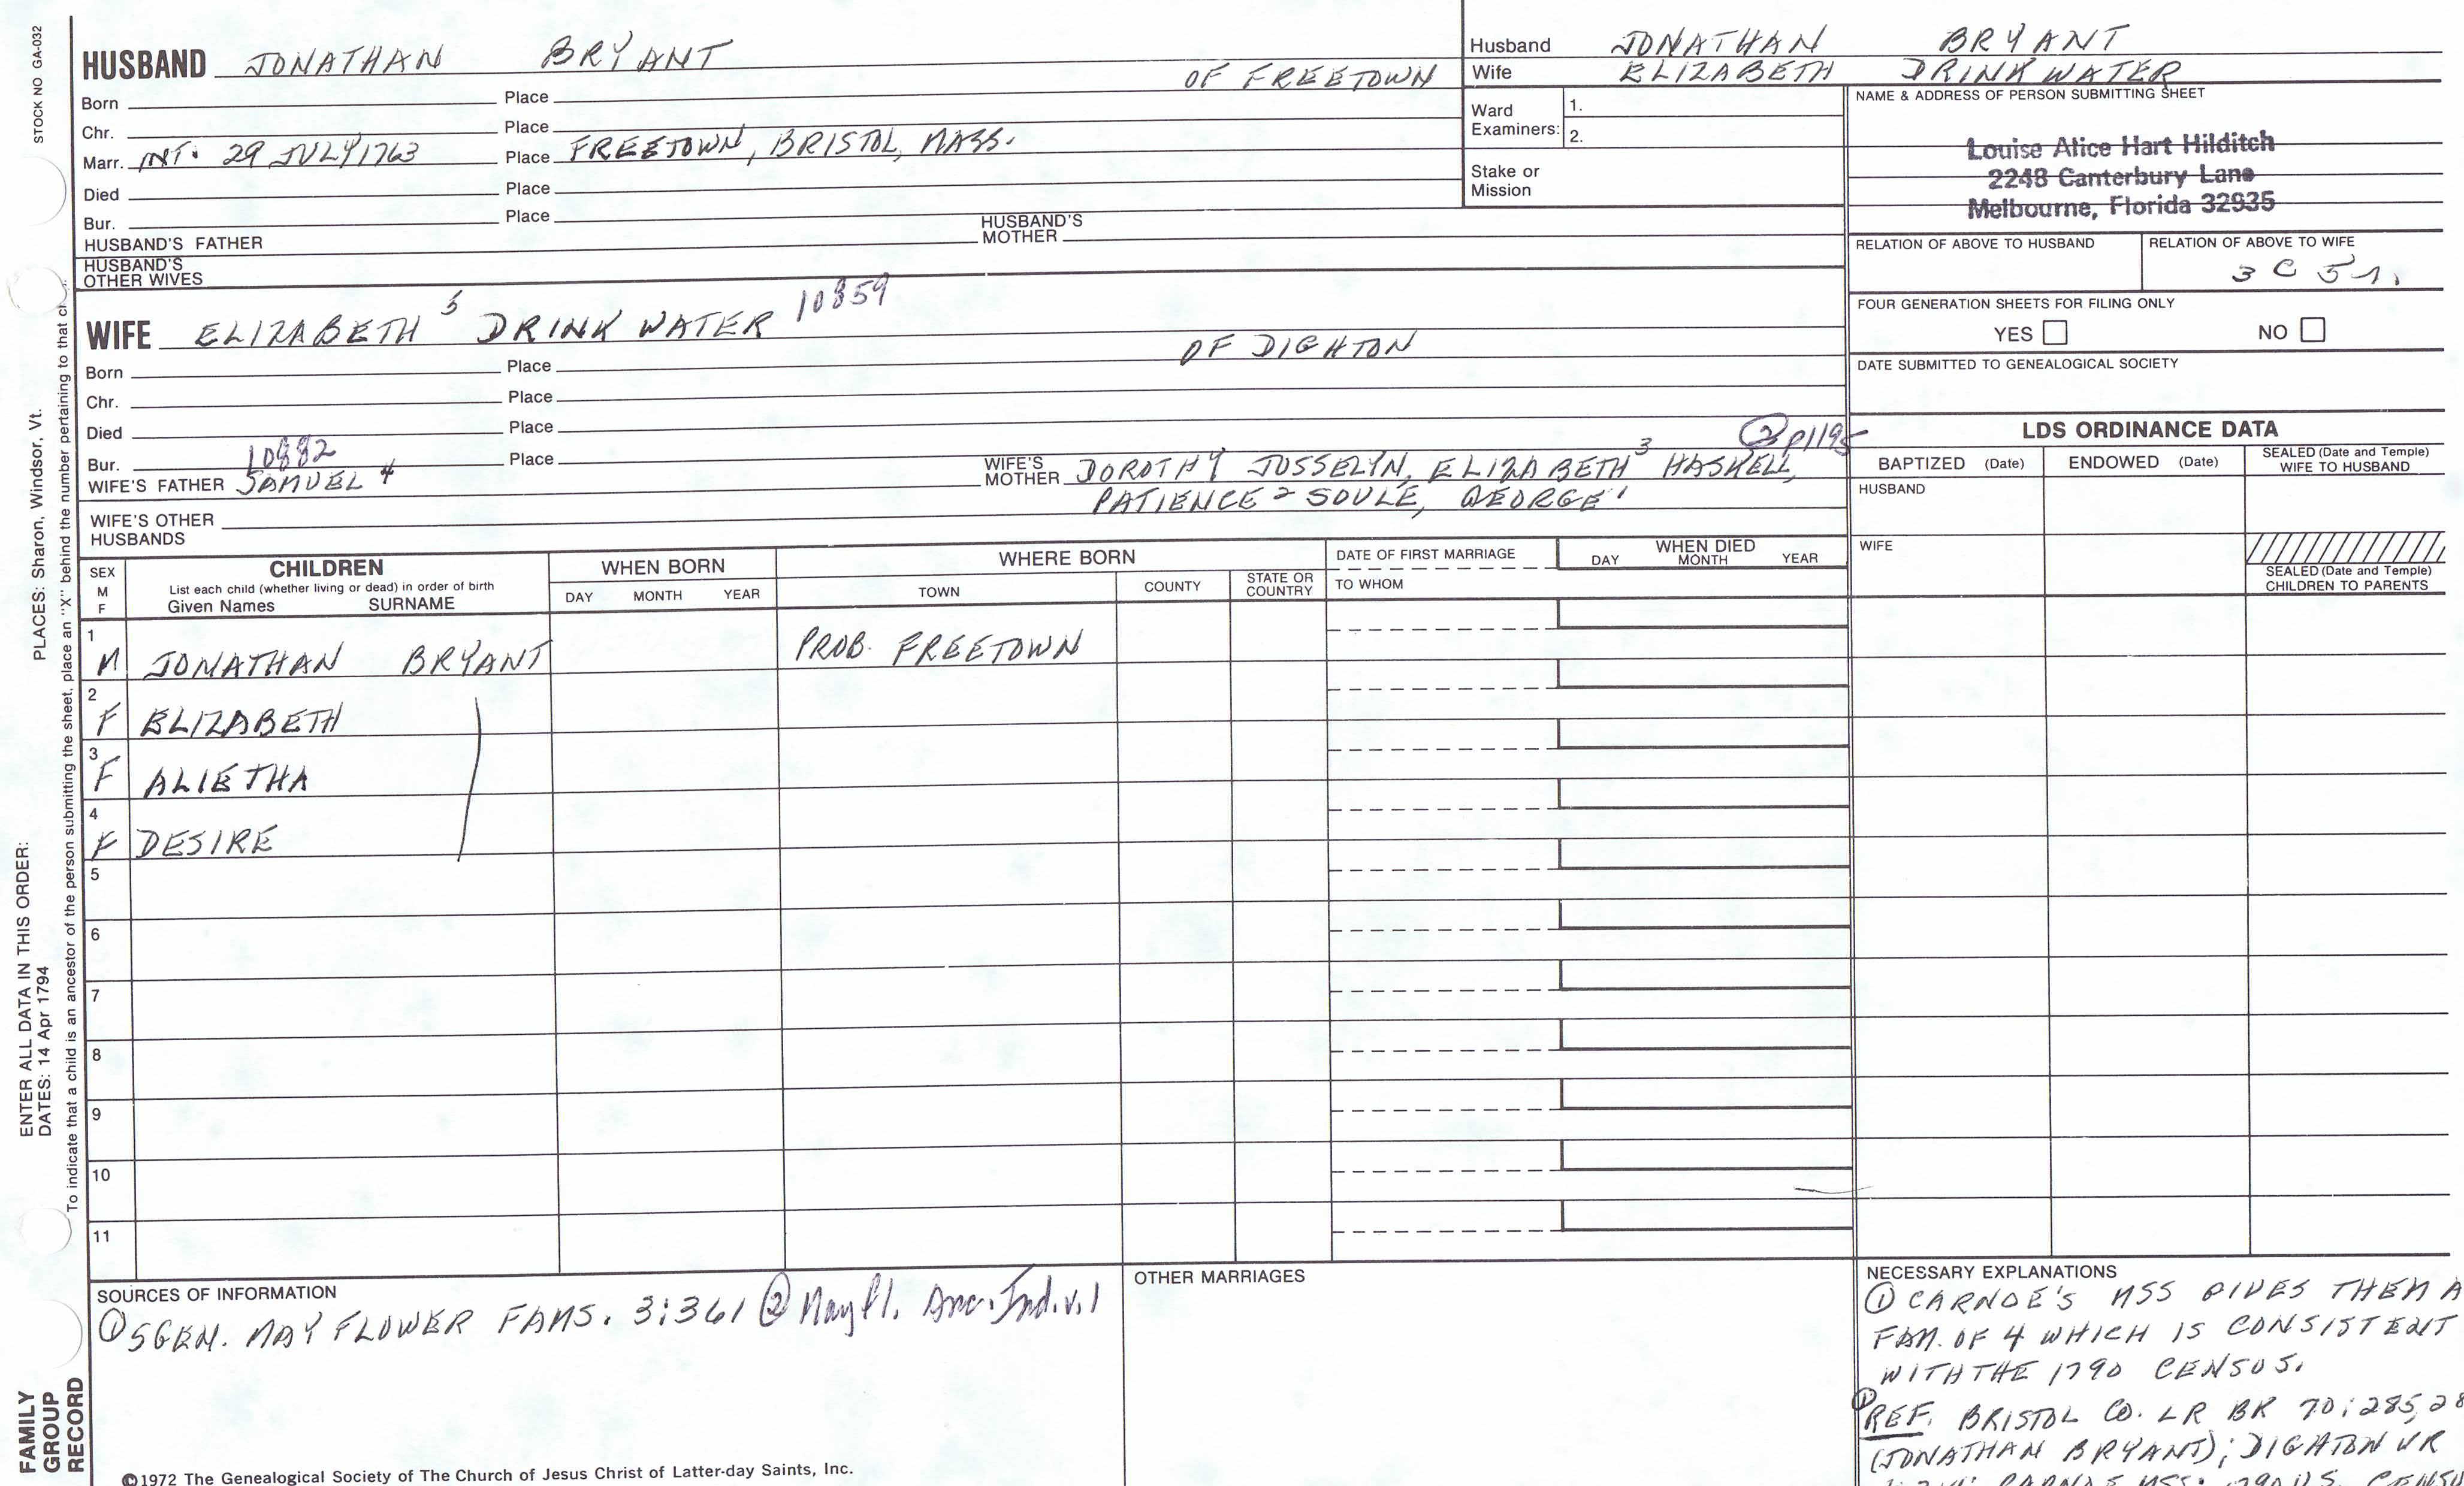 STOCK NO GA-032
PLACES: Sharon, Windsor, Vt.
ENTER ALL DATA IN THIS ORDER:
DATES: 14 Apr 1794
To indicate that a child is an ancestor of the person submitting the sheet, place an "X" behind the number pertaining to that
FAMILY
GROUP
RECORD
HUSBAND JONATHAN BRYANT
OF FREETOWN
Born Place
Chr. Place
Marr. INT. 29 JULY 1763 Place FREETOWN, BRISTOL, MASS.
Died Place
Bur. Place
HUSBAND'S FATHER HUSBAND'S MOTHER
HUSBAND'S
OTHER WIVES
WIFE ELIZABETH 5 DRINKWATER 10859
OF DIGHTON
Born Place
Chr. Place
Died Place
Bur. 10882 Place
2 p1195
WIFE'S FATHER SAMUEL 4 WIFE'S MOTHER DOROTHY JOSSELYN, ELIZABETH 3 HASKELL,
PATIENCE 2 SOULE, GEORGE 1
WIFE'S OTHER
HUSBANDS
Husband JONATHAN BRYANT
Wife ELIZABETH DRINKWATER
Ward
Examiners:
1.
2.
Stake or
Mission
NAME & ADDRESS OF PERSON SUBMITTING SHEET
Louise Alice Hart Hilditch
2248 Canterbury Lane
Melbourne, Florida 32935
RELATION OF ABOVE TO HUSBAND
RELATION OF ABOVE TO WIFE
3 C 5 1.
FOUR GENERATION SHEETS FOR FILING ONLY
YES NO
DATE SUBMITTED TO GENEALOGICAL SOCIETY
LDS ORDINANCE DATA
BAPTIZED (Date) ENDOWED (Date) SEALED (Date and Temple)
WIFE TO HUSBAND
HUSBAND
WIFE
SEALED (Date and Temple)
CHILDREN TO PARENTS
SEX
M
F
CHILDREN
List each child (whether living or dead) in order of birth
Given Names SURNAME
WHEN BORN
DAY MONTH YEAR
WHERE BORN
TOWN COUNTY STATE OR COUNTRY
DATE OF FIRST MARRIAGE
TO WHOM
WHEN DIED
DAY MONTH YEAR
1 M JONATHAN BRYANT PROB. FREETOWN
2 F ELIZABETH
3 F ALIETHA
4 F DESIRE
5
6
7
8
9
10
11
SOURCES OF INFORMATION
① 5GEN. MAYFLOWER FAMS. 3:361 ② Mayfl. Anc. Ind. v. 1
OTHER MARRIAGES
NECESSARY EXPLANATIONS
① CARNOE'S MSS GIVES THEM A
FAM. OF 4 WHICH IS CONSISTENT
WITH THE 1790 CENSUS.
① REF. BRISTOL CO. LR BR 70:285, 28
(JONATHAN BRYANT); DIGHTON VR
©1972 The Genealogical Society of The Church of Jesus Christ of Latter-day Saints, Inc.